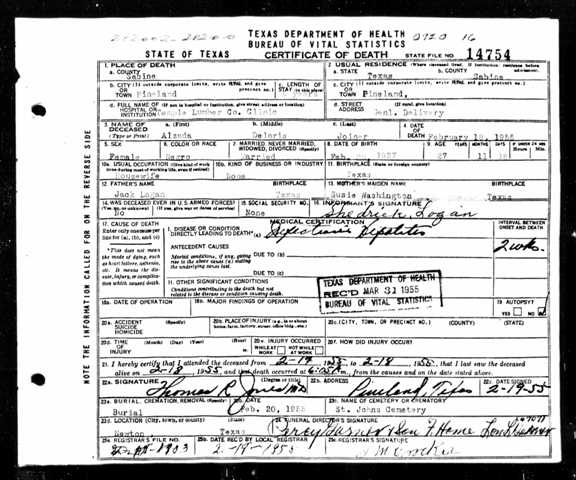 TEXAS DEPARTMENT OF HEALTH
BUREAU OF VITAL STATISTICS
STATE OF TEXAS CERTIFICATE OF DEATH STATE FILE NO. 14754
1. PLACE OF DEATH 2. USUAL RESIDENCE (Where deceased lived. If institution: residence before admission)
a. COUNTY Sabine a. STATE Texas b. COUNTY Sabine
b. CITY (If outside corporate limits, write RURAL and give precinct no.) OR TOWN Pineland c. LENGTH OF STAY c. CITY (If outside corporate limits, write RURAL and give precinct no.) OR TOWN Pineland,
d. FULL NAME OF (If not in hospital or institution, give street address or location) HOSPITAL OR INSTITUTION Temple Lumber Co. Clinic d. STREET ADDRESS (If rural, give location) Genl. Delivery
3. NAME OF DECEASED (Type or Print) a. (First) b. (Middle) Deloris c. (Last) Joiner 4. DATE OF DEATH February 18, 1955
5. SEX Female 6. COLOR OR RACE Negro 7. MARRIED, NEVER MARRIED, WIDOWED, DIVORCED (Specify) Married 8. DATE OF BIRTH Feb. 1927 27 11
10a. USUAL OCCUPATION (Give kind of work done during most of working life, even if retired) Housewife 10b. KIND OF BUSINESS OR INDUSTRY 11. BIRTHPLACE (State or foreign country) Texas
12. FATHER'S NAME BIRTHPLACE Jack Logan Texas 13. MOTHER'S MAIDEN NAME BIRTHPLACE Susie Washington Texas
14. WAS DECEASED EVER IN U.S. ARMED FORCES? No 15. SOCIAL SECURITY NO. None 16. INFORMANT'S SIGNATURE Shedrick Logan
17. CAUSE OF DEATH MEDICAL CERTIFICATION INTERVAL BETWEEN ONSET AND DEATH
Enter only one cause per line for (a), (b), and (c) I. DISEASE OR CONDITION DIRECTLY LEADING TO DEATH* (a) Infectious Hepatitis 2 wks.
*This does not mean the mode of dying, such as heart failure, asthenia, etc. It means the disease, injury, or complication which caused death.
ANTECEDENT CAUSES
Morbid conditions, if any, giving rise to the above cause (a) stating the underlying cause last. DUE TO (b)
DUE TO (c)
II. OTHER SIGNIFICANT CONDITIONS
Conditions contributing to the death but not related to the disease or condition causing death.
TEXAS DEPARTMENT OF HEALTH
REC'D MAR 31 1955
BUREAU OF VITAL STATISTICS
18a. DATE OF OPERATION 18b. MAJOR FINDINGS OF OPERATION 19. AUTOPSY? YES NO
20a. ACCIDENT SUICIDE HOMICIDE 20b. PLACE OF INJURY (e.g., in or about home, farm, factory, street, office bldg., etc.) 20c. (CITY, TOWN, OR PRECINCT NO.) (COUNTY) (STATE)
20d. TIME OF INJURY (Month) (Day) (Year) (Hour) 20e. INJURY OCCURRED WHILE AT WORK NOT WHILE AT WORK 20f. HOW DID INJURY OCCUR?
21. I hereby certify that I attended the deceased from 1955 to 2-18 1955, that I last saw the deceased
alive on 2-18, 1955 and that death occurred at m., from the causes and on the date stated above.
22a. SIGNATURE (Degree or title) Thomas R. Jones MD 22b. ADDRESS Pineland, Texas 22c. DATE SIGNED 2-19-55
23a. BURIAL, CREMATION, REMOVAL (Specify) Burial 23b. DATE Feb. 20, 1955 23c. NAME OF CEMETERY OR CREMATORY St. Johns Cemetery
23d. LOCATION (City, town, or county) (State) Newton Texas 24. FUNERAL DIRECTOR'S SIGNATURE
25a. REGISTRAR'S FILE NO. 25b. DATE REC'D BY LOCAL REGISTRAR 25c. REGISTRAR'S SIGNATURE
NOTE THE INFORMATION CALLED FOR ON THE REVERSE SIDE